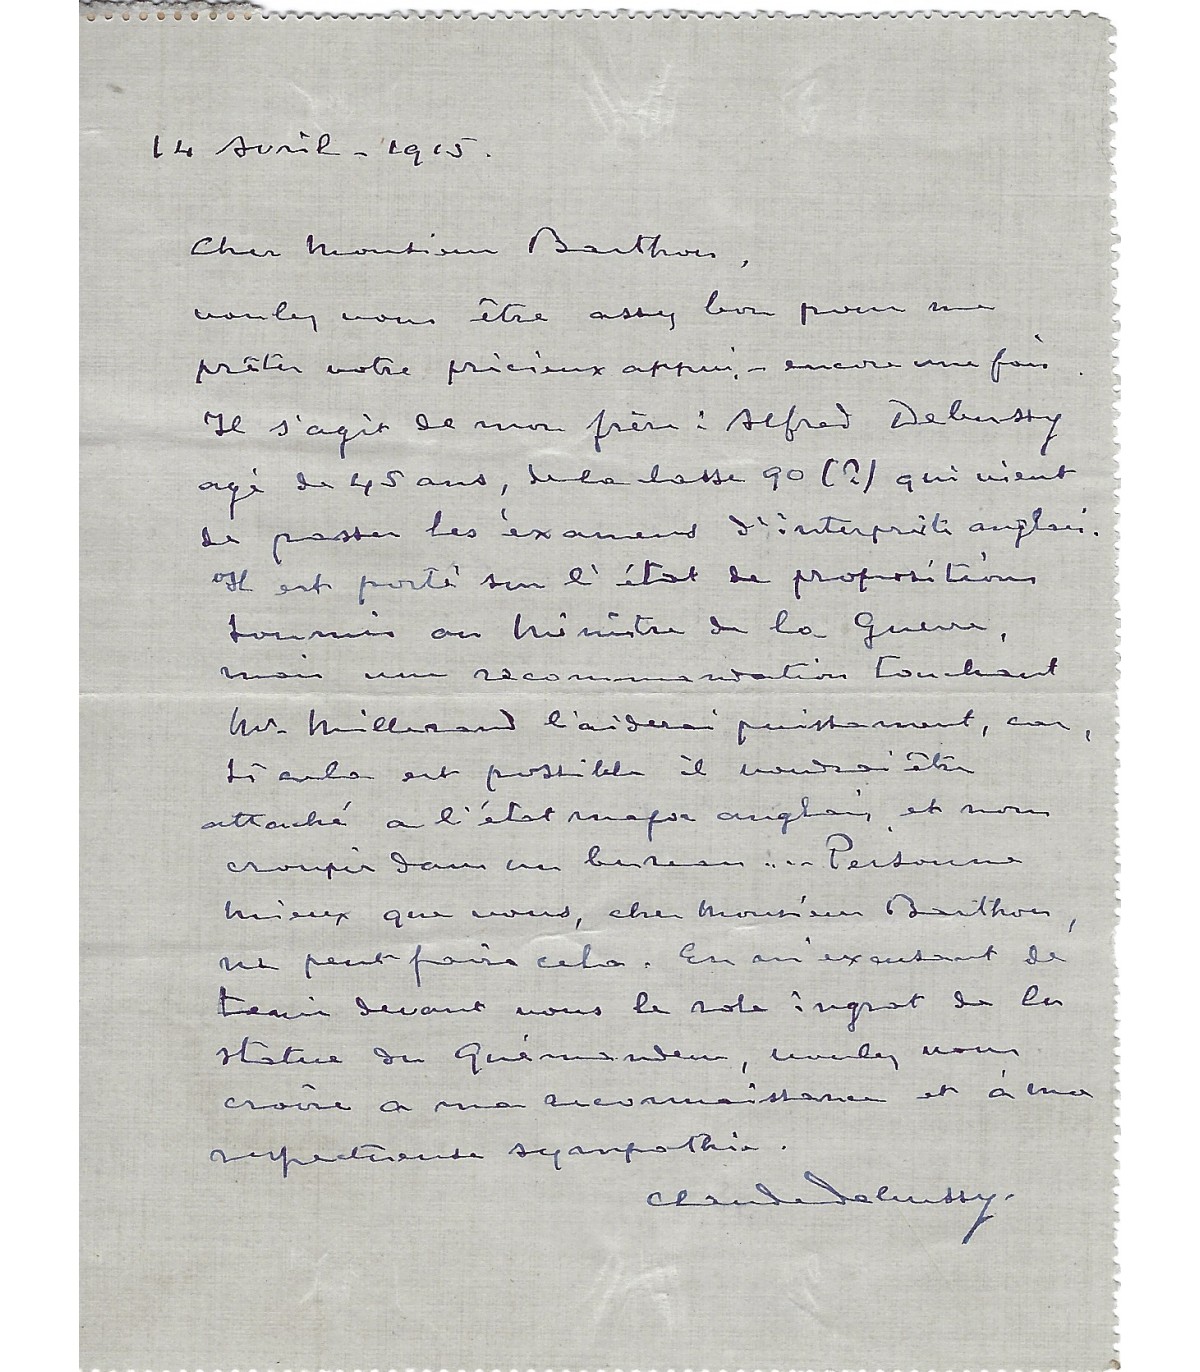 14 Avril - 1915.
Cher Monsieur Barthou,
voulez vous être assez bon pour me
prêter votre précieux appui, - encore une fois.
Il s'agit de mon frère : Alfred Debussy
agé de 45 ans, de la classe 90 (?) qui vient
de passer les éxamens d'interprète anglais.
Il est porté sur l'état de propositions
soumis au Ministre de la Guerre,
mais une recommandation touchant
Mr. Millerand l'aiderai puissament, car,
si cela est possible il voudrai être
attaché a l'état major anglais, et non
croupir dans un bureau .... Personne
mieux que vous, cher Monsieur Barthou,
ne peut faire cela. En m'excusant de
tenir devant vous le role ingrat de la
statue du Quémandeur, voulez vous
croire a ma reconnaissance et à ma
respectueuse sympathie.
Claude Debussy.